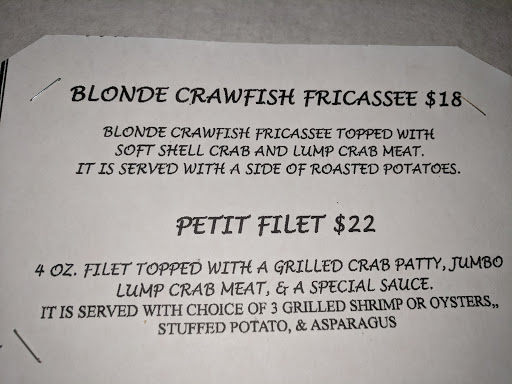 BLONDE CRAWFISH FRICASSEE $18
BLONDE CRAWFISH FRICASSEE TOPPED WITH
SOFT SHELL CRAB AND LUMP CRAB MEAT.
IT IS SERVED WITH A SIDE OF ROASTED POTATOES.
PETIT FILET $22
4 OZ. FILET TOPPED WITH A GRILLED CRAB PATTY, JUMBO
LUMP CRAB MEAT, & A SPECIAL SAUCE.
IT IS SERVED WITH CHOICE OF 3 GRILLED SHRIMP OR OYSTERS,,
STUFFED POTATO, & ASPARAGUS